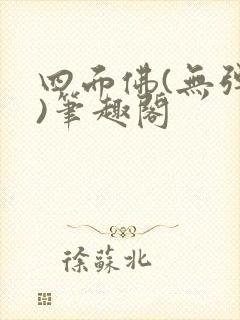 四面佛(無彈
)筆趣閣
徐蘇北